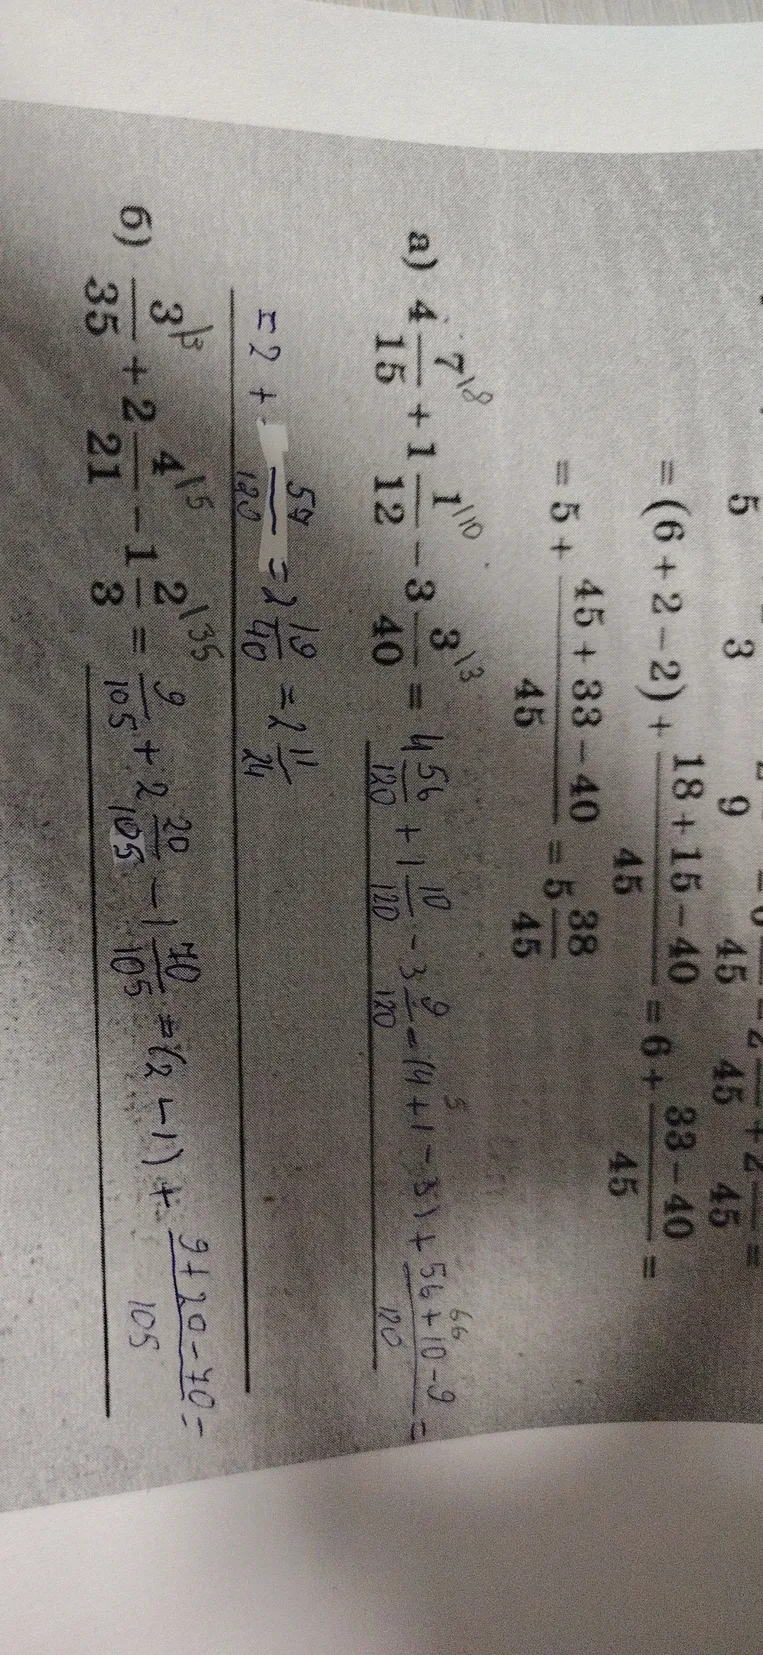 5 3 9 45 45 45
= (6 + 2 − 2) + (18 + 15 − 40)/45 = 6 + (33 − 40)/45 =
= 5 + (45 + 33 − 40)/45 = 5 38/45
а) 4 7\8/15 + 1 1\10/12 − 3 3\3/40 = 4 56/120 + 1 10/120 − 3 9/120 = (4 + 1 − 3) + (56 + 10 − 9)/120 =
5 66
= 2 + 57/120 = 2 19/40 = 2 11/24
б) 3\3/35 + 2 4\5/21 − 1 2\35/3 = 9/105 + 2 20/105 − 1 70/105 = (2 − 1) + (9 + 20 − 70)/105 =